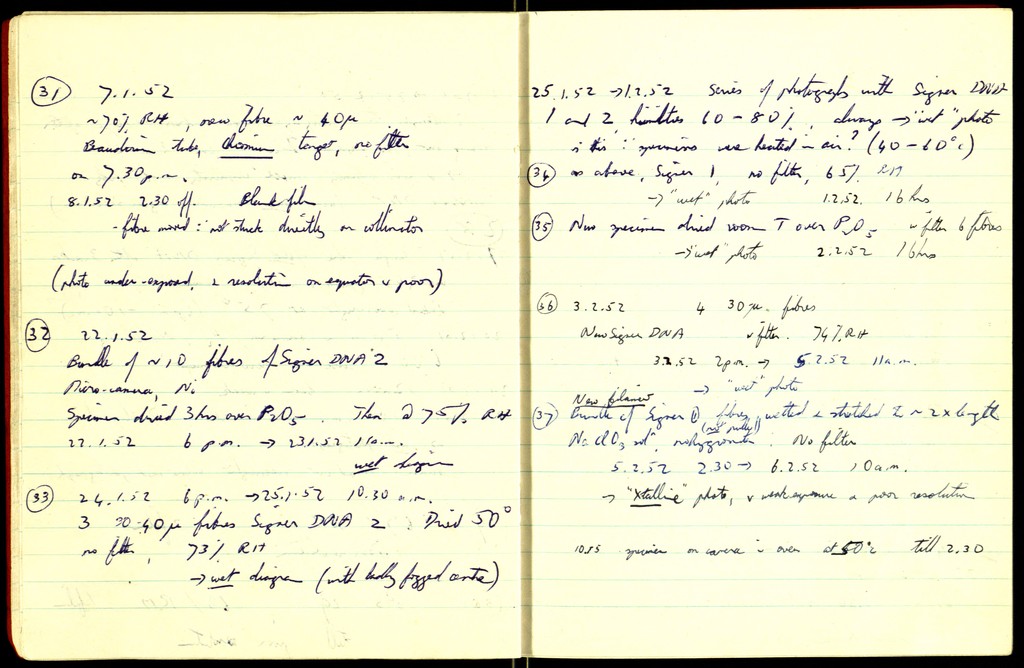 (31) 7.1.52
~70% RH, new fibre ~ 40μ
Beaudouin tube, Chromium target, no filter
on 7.30 p.m.
8.1.52 2.30 off. Blank film
- fibre moved ∵ not stuck directly on collimator
(photo under-exposed, & resolution on equator v poor)
(32) 22.1.52
Bundle of ~10 fibres of Signer DNA 2
Micro-camera, Ni
Specimen dried 3 hrs over P2O5. Then @ 75% RH
22.1.52 6 p.m. → 23.1.52 11 a.m.
wet
(33) 24.1.52 6 p.m. → 25.1.52 10.30 a.m.
3 40μ fibres Signer DNA 2 Dried 50°
no filter, 73% RH
→ wet diagram (with badly fogged centre)
25.1.52 → 1.2.52 Series of photographs with Signer DNA
1 and 2, humidities 60 - 80%, always → "wet" photo
is this ∵ specimens were heated in air? (40 - 60°C)
(34) as above, Signer 1, no filter, 65% RH
→ "wet" photo 1.2.52. 16 hrs
(35) New specimen dried room T over P2O5 filter 6 fibres
→ "wet" photo 2.2.52 16 hrs
(36) 3.2.52 4 30μ fibres
New Signer DNA filter. 74% RH
3.2.52 2 p.m. → 5.2.52 11 a.m.
→ "wet" photo
New filament
(37) Bundle of Signer ① fibres, wetted & stretched to ~ 2 x length
(not fully!)
Na ClO3 soln, no hygrometer. No filter
5.2.52 2.30 → 6.2.52 10 a.m.
→ "Xtalline" photo, v weak exposure & poor resolution
10.55 specimen on camera in oven at 50°C till 2.30